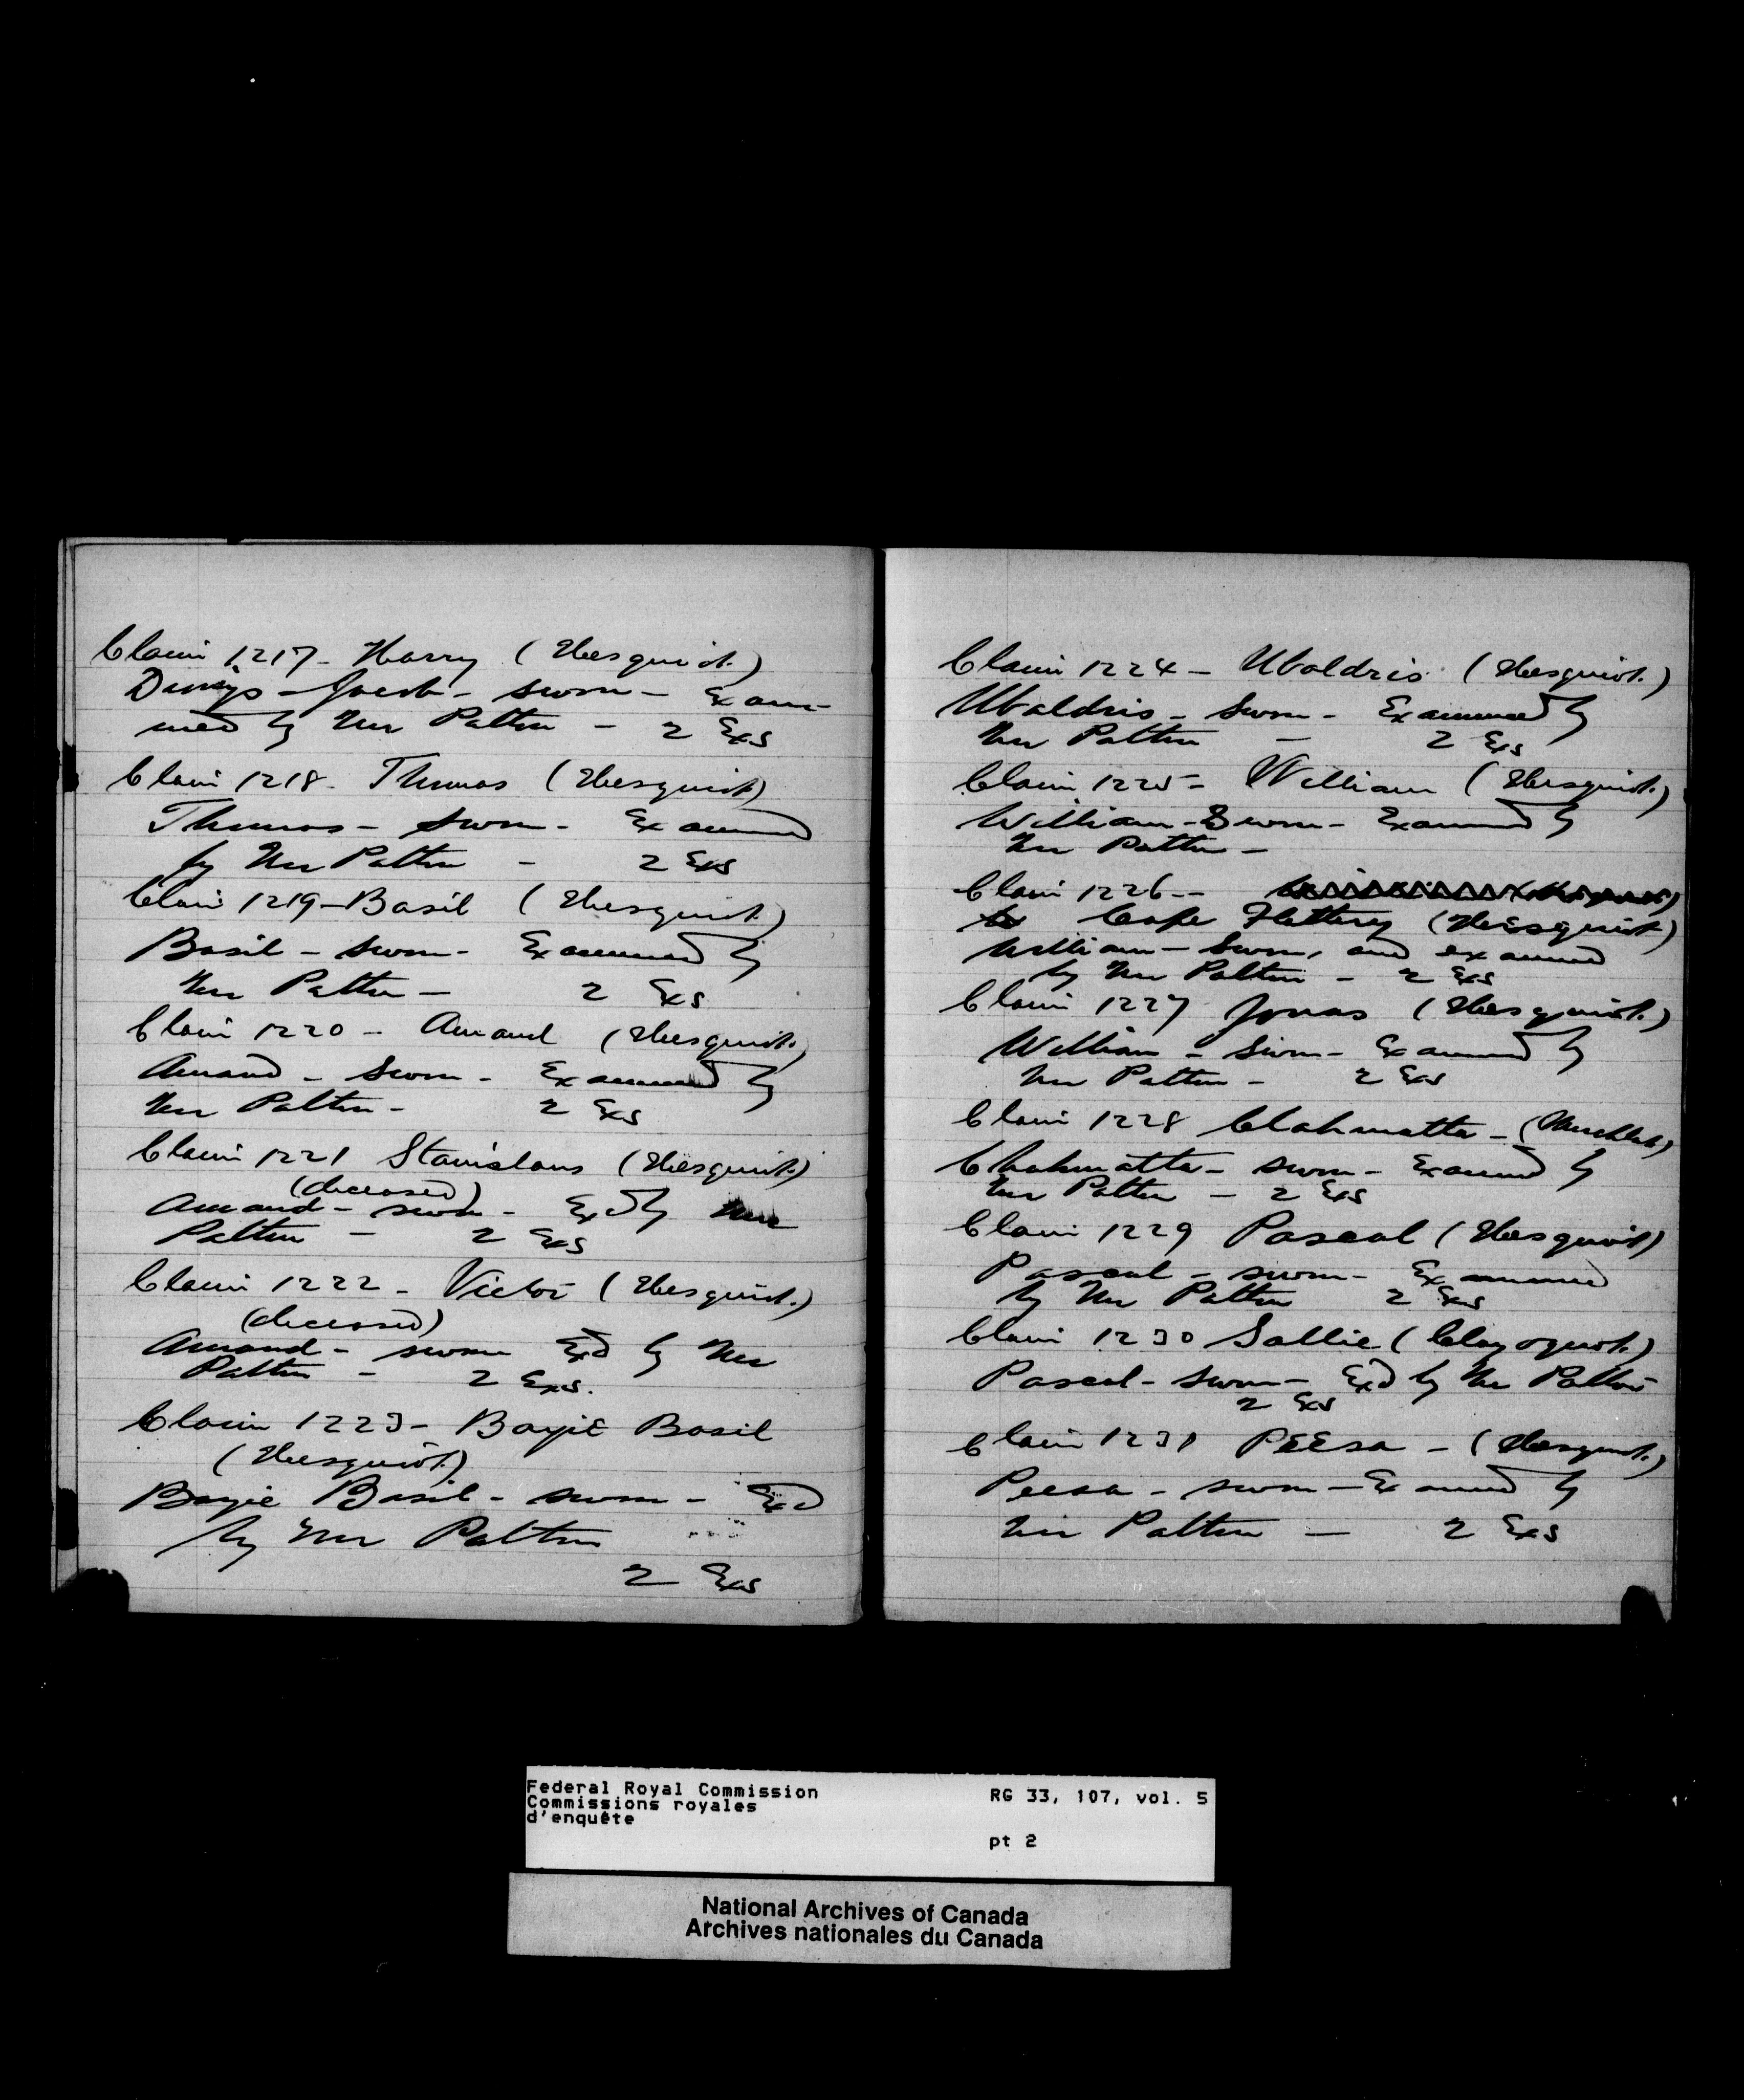 Claim 1217 - Harry (Hesquiot.)
Jacob - sworn - Exam-
ined by Mr Patton - 2 Exs
Claim 1218. Thomas (Hesquiot)
Thomas - sworn - Examined
by Mr Patton - 2 Exs
Claim 1219 - Basil (Hesquiot.)
Basil - sworn - Examined by
Mr Patton - 2 Exs
Claim 1220 - Amand (Hesquiot.)
Amand - sworn - Examined by
Mr Patton - 2 Exs
Claim 1221 Stanislaus (Hesquiot.)
(deceased)
Amand - sworn - Exd by Mr
Patton - 2 Exs
Claim 1222 - Victor (Hesquiot.)
(deceased)
Amand - sworn Exd by Mr
Patton - 2 Exs.
Claim 1223 - Bayie Basil
(Hesquiot.)
Bayie Basil - sworn - Exd
by Mr Patton
2 Exs
Claim 1224 - Ubaldris (Hesquiot.)
Ubaldris - Sworn - Examined by
Mr Patton - 2 Exs
Claim 1225 - William (Hesquiot.)
William - Sworn - Examined by
Mr Patton -
Claim 1226 -
Cape Flattery (Hesquiot)
William - Sworn, and examined
by Mr Patton - 2 Exs
Claim 1227 Jonas (Hesquiot.)
William - Sworn - Examined by
Mr Patton - 2 Exs
Claim 1228 Clahmatta -
Clahmatta - sworn - Examined by
Mr Patton - 2 Exs
Claim 1229 Pascal (Hesquiot)
Pascal - sworn - Examined
by Mr Patton 2 Exs
Claim 1230 Sallie (Clayoquot.)
Pascal - Sworn - Exd by Mr Patton
2 Exs
Claim 1231 PEEsa - (Hesquiot.)
Peesa - sworn - Examined by
Mr Patton - 2 Exs
Federal Royal Commission RG 33, 107, vol. 5
Commissions royales
d'enquête
pt 2
National Archives of Canada
Archives nationales du Canada